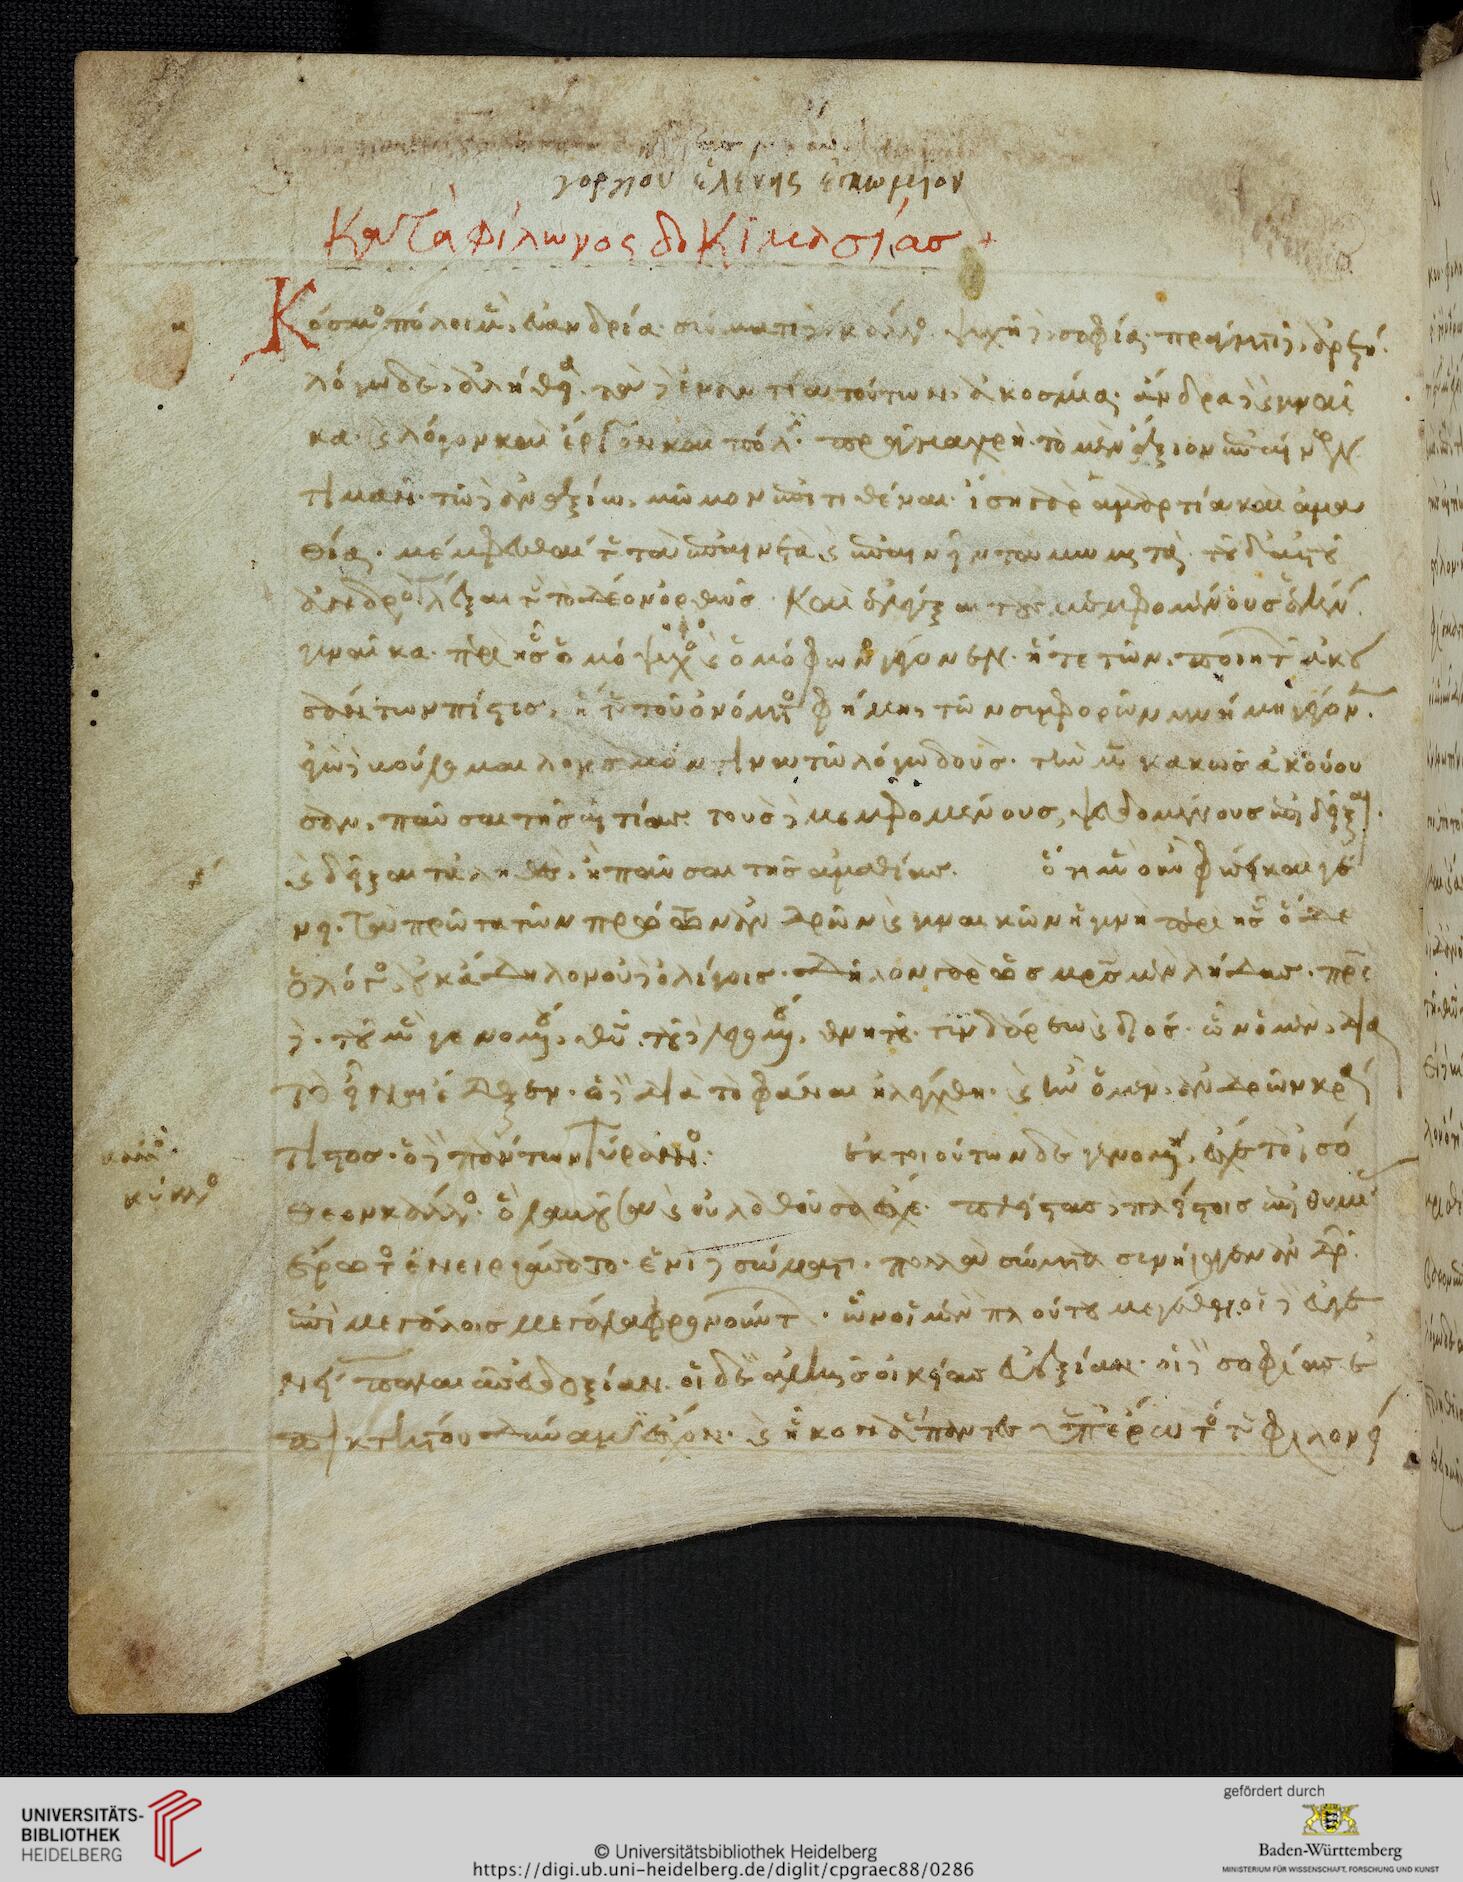 γοργίου ἑλένης ἐγκώμιον
Κατὰ φίλωνος δοκιμασίας +
Κόσμος πόλει μὲν, εὐανδρία· σώματι δὲ, κάλλος· ψυχῆ δὲ, σοφία· πράγματι δὲ, ἀρετή·
λόγω δὲ, ἀλήθεια· τὰ δὲ ἐναντία τούτων, ἀκοσμία· ἄνδρα δὲ καὶ γυναῖ
κα· καὶ λόγον καὶ ἔργον καὶ πόλιν· πρᾶγμα χρὴ τὸ μὲν ἄξιον ἐπαίνων
τιμᾶν· τῶ δὲ ἀναξίω, μῶμον ἐπιτιθέναι· ἴση γὰρ ἁμαρτία καὶ ἀμα
θία· μέμφεσθαί τε τὰ ἐπαινετὰ καὶ ἐπαινεῖν τὰ μωμητά· τοῦ δ' αὐτοῦ
ἀνδρὸς λέξαι τε τὸ δέον ὀρθῶς· καὶ ἐλέγξαι τοὺς μεμφομένους ἑλένην·
γυναῖκα· περὶ ἧς ὁμόψυχος καὶ ὁμόφωνος γέγονεν· ἥ τε τῶν ποιητῶν ἀκου
σάντων πίστις, ἥ τε τοῦ ὀνόματος φήμη, τῶν συμφορῶν μνήμη γέγονεν·
ἐγὼ δὲ βούλομαι λογισμόν τινα τῶ λόγω δοὺς· τὴν μὲν κακῶς ἀκούου
σαν, παῦσαι τῆς αἰτίας· τοὺς δὲ μεμφομένους, ψευδομένους ἐπιδεῖξαι·
καὶ δεῖξαι τἀληθὲς, ἢ παῦσαι τῆς ἀμαθίας. ὅτι μὲν οὖν φύσει καὶ γέ
νει· τὰ πρῶτα τῶν πρώτων ἀνδρῶν καὶ γυναικῶν ἡ γυνὴ περὶ ἧς ὅδε
ὁ λόγος, οὐκ ἄδηλον οὐδὲ ὀλίγοις· δῆλον γὰρ ὡς μητρὸς μὲν λήδας· πατρὸς
δὲ· τοῦ μὲν γενομένου, θεοῦ· τοῦ δὲ λεγομένου, θνητοῦ· τυνδάρεω καὶ διός· ὧν ὁ μὲν, διὰ
τὸ εἶναι ἔδοξεν· ὁ δὲ διὰ τὸ φάναι ἠλέγχθη· καὶ ἦν ὁ μὲν, ἀνδρῶν κρά
τιστος· ὁ δὲ πάντων τύραννος· ἐκ τοιούτων δὲ γενομένη, ἔσχε τὸ ἰσό
θεον κάλλος· ὃ λαβοῦσα καὶ οὐ λαθοῦσα ἔσχε· πλείστας δὲ πλείστοις ἐπιθυμίας
ἔρωτος ἐνειργάσατο· ἑνὶ δὲ σώματι· πολλὰ σώματα συνήγαγεν ἀνδρῶν·
ἐπὶ μεγάλοις μεγάλα φρονούντων· ὧν οἱ μὲν πλούτου μεγέθη· οἱ δὲ εὐγε
νείας παλαιᾶς εὐδοξίαν· οἱ δὲ ἀλκῆς οἰκείας εὐεξίαν· οἱ δὲ σοφίας ἐ
πικτήτου δύναμιν ἔσχον· καὶ ἧκον ἅπαντες ὑπ' ἔρωτός τε φιλονεί
UNIVERSITÄTS-
BIBLIOTHEK
HEIDELBERG
© Universitätsbibliothek Heidelberg
https://digi.ub.uni-heidelberg.de/diglit/cpgraec88/0286
gefördert durch
Baden-Württemberg
MINISTERIUM FÜR WISSENSCHAFT, FORSCHUNG UND KUNST